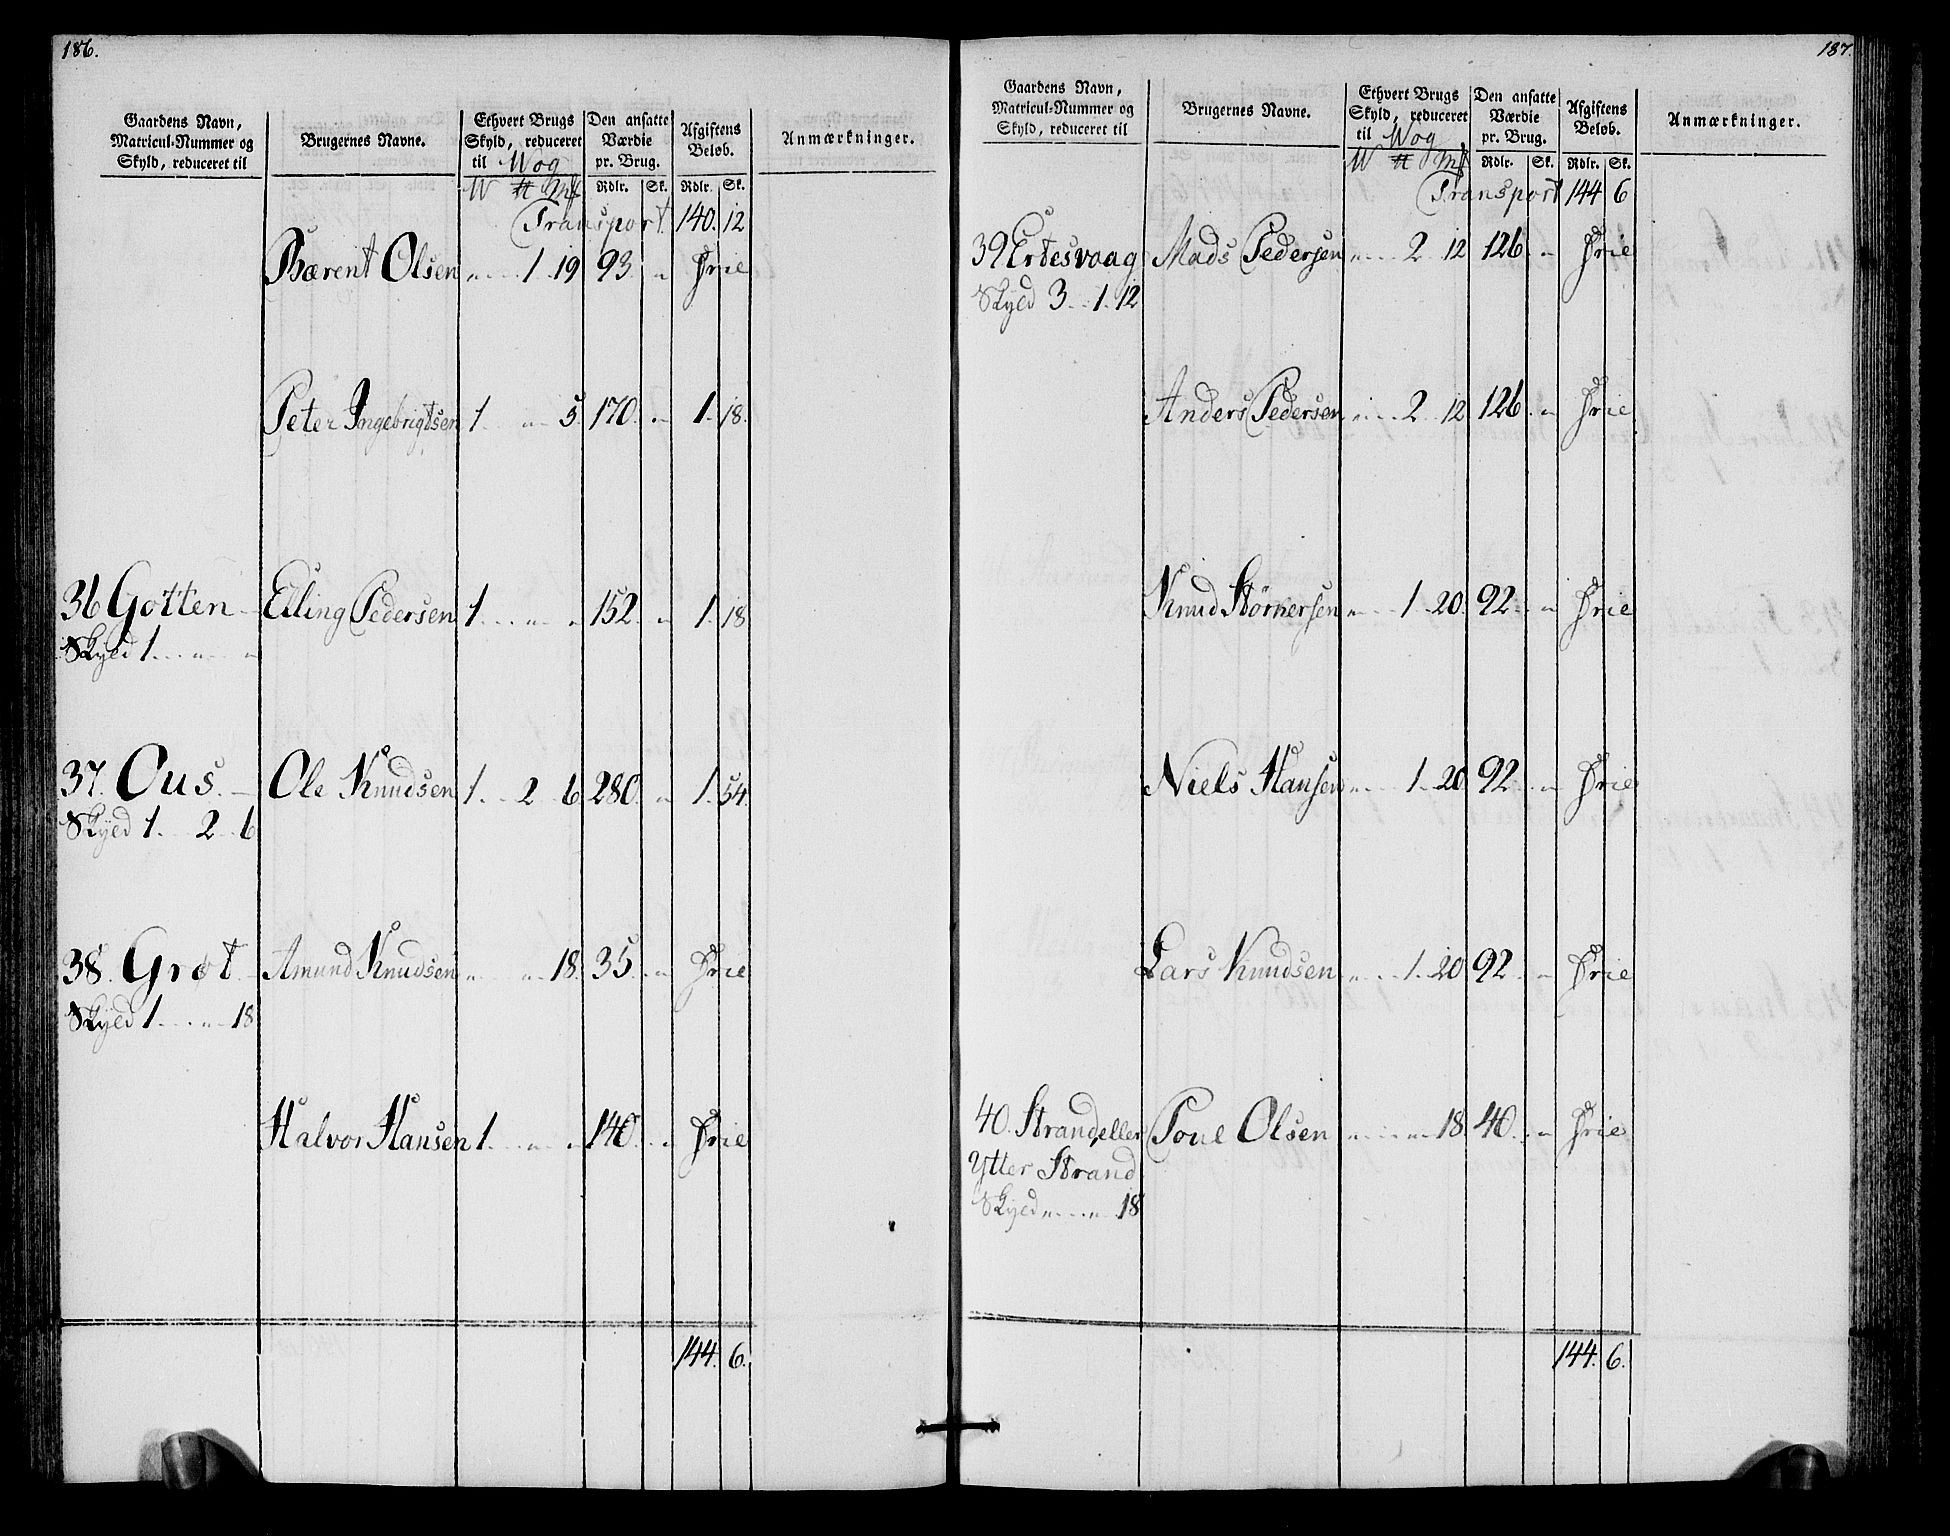 186.
Gaardens Navn, Matricul-Nummer og Skyld, reduceret til | Brugernes Navne. | Ethvert Brugs Skyld, reduceret til Wog W ℔ Mk | Den ansatte Værdie pr. Brug. Rdlr. Sk. | Afgiftens Beløb. Rdlr. Sk. | Anmærkninger.
Transport 140. 12
Bærent Olsen „ 1 19 93. „ Frie
Peter Ingebrigtsen 1 „ 5. 170. „ 1. 18.
36 Gotten Elling Pedersen 1 „ „ 152. „ 1. 18
Skyld 1 „ „
37. Ous. Ole Knudsen 1 2 6 280. „ 1. 54.
Skyld 1 2 6
38. Grøt Amund Knudsen „ „ 18. 35. „ Frie
Skyld 1 „ 18
Halvor Hansen 1 „ „ 140. „ Frie
144. 6.
187.
Gaardens Navn, Matricul-Nummer og Skyld, reduceret til | Brugernes Navne. | Ethvert Brugs Skyld, reduceret til Wog W ℔ Mk | Den ansatte Værdie pr. Brug. Rdlr. Sk. | Afgiftens Beløb. Rdlr. Sk. | Anmærkninger.
Transport 144 6
39 Ertesvaag Mads Pedersen „ 2 12 126 „ Frie
Skyld 3 1 12
Anders Pedersen „ 2 12 126 „ Frie
Knud Størkersen „ 1 20. 92 „ Frie
Niels Hansen „ 1 20. 92 „ Frie
Lars Knudsen „ 1 20 92 „ Frie
40. Strand eller Poul Olsen „ „ 18 40. „ Frie
Ytter Strand
Skyld „ „ 18
144. 6.